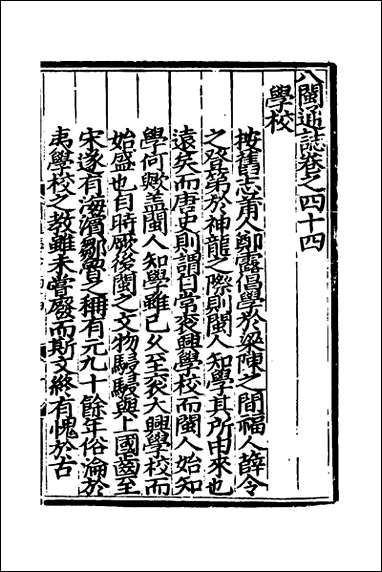 八閩通誌卷之四十四
學校
按舊志莆人鄭露倡學於梁陳之間福人薛令
之登第於神龍之際則閩人知學其所由來也
遠矣而唐史則謂自常衮興學校而閩人始知
學何歟蓋閩人知學雖已久至衮大興學校而
始盛也自時厥後閩之文物駸駸與上國齒至
宋遂有海濱鄒魯之稱有元九十餘年俗淪於
夷學校之教雖未嘗廢而斯文終有愧於古